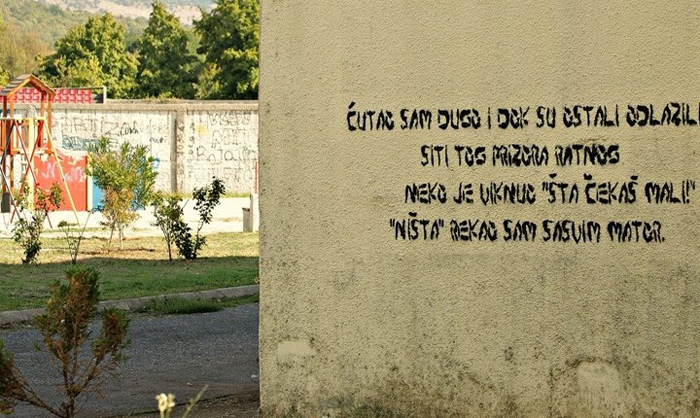 ĆUTAO SAM DUGO I DOK SU OSTALI ODLAZILI
SITI TOG PRIZORA RATNOG
NEKO JE VIKNUO "ŠTA ČEKAŠ MALI!"
"NIŠTA" REKAO SAM SASVIM MATOR.